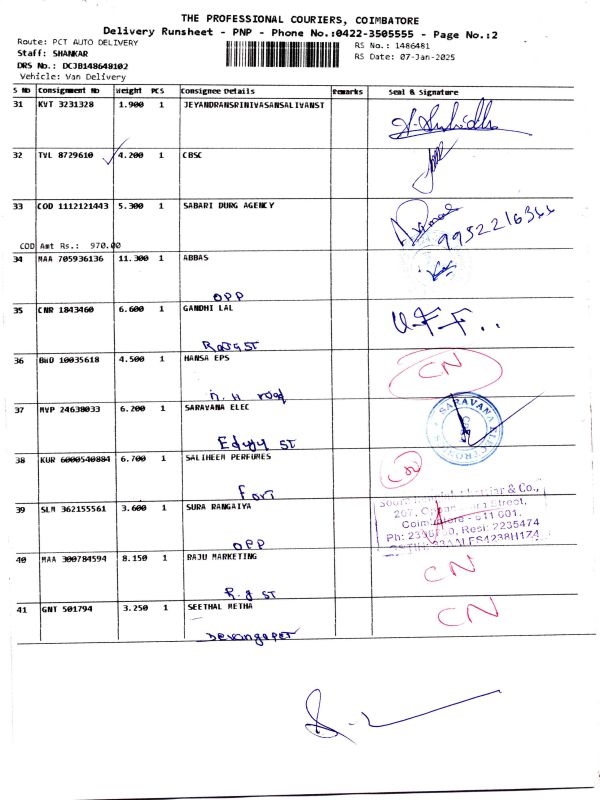 THE PROFESSIONAL COURIERS, COIMBATORE
Delivery Runsheet - PNP - Phone No.:0422-3505555 - Page No.:2
Route: PCT AUTO DELIVERY
RS No.: 1486481
Staff: SHANKAR
RS Date: 07-Jan-2025
DRS No.: DCJB148648102
Vehicle: Van Delivery
S No Consignment No Weight PCS Consignee Details Remarks Seal & Signature
31 KVT 3231328 1.900 1 JEYANDRANSRINIVASANSALIVANST
32 TVL 8729610 4.200 1 CBSC
33 COD 1112121443 5.300 1 SABARI DURG AGENCY
9952216366
COD Amt Rs.: 970.00
34 MAA 705936136 11.300 1 ABBAS
OPP
35 CNR 1843460 6.600 1 GANDHI LAL
U.F.F..
36 BWD 10035618 4.500 1 HANSA EPS
CN
n. H road
37 MVP 24638033 6.200 1 SARAVANA ELEC
SARAVANA ELECTRONICS
ST
38 KUR 6000540884 6.700 1 SALIHEEM PERFUMES
CN
Fort
39 SLM 362155561 3.600 1 SURA RANGAIYA
& Co.,
207, Street,
Coimbatore - 641 001.
Resi: 2235474
OPP
40 MAA 300784594 8.150 1 RAJU MARKETING
CN
R.g ST
41 GNT 501794 3.250 1 SEETHAL METHA
CN
Devangapet